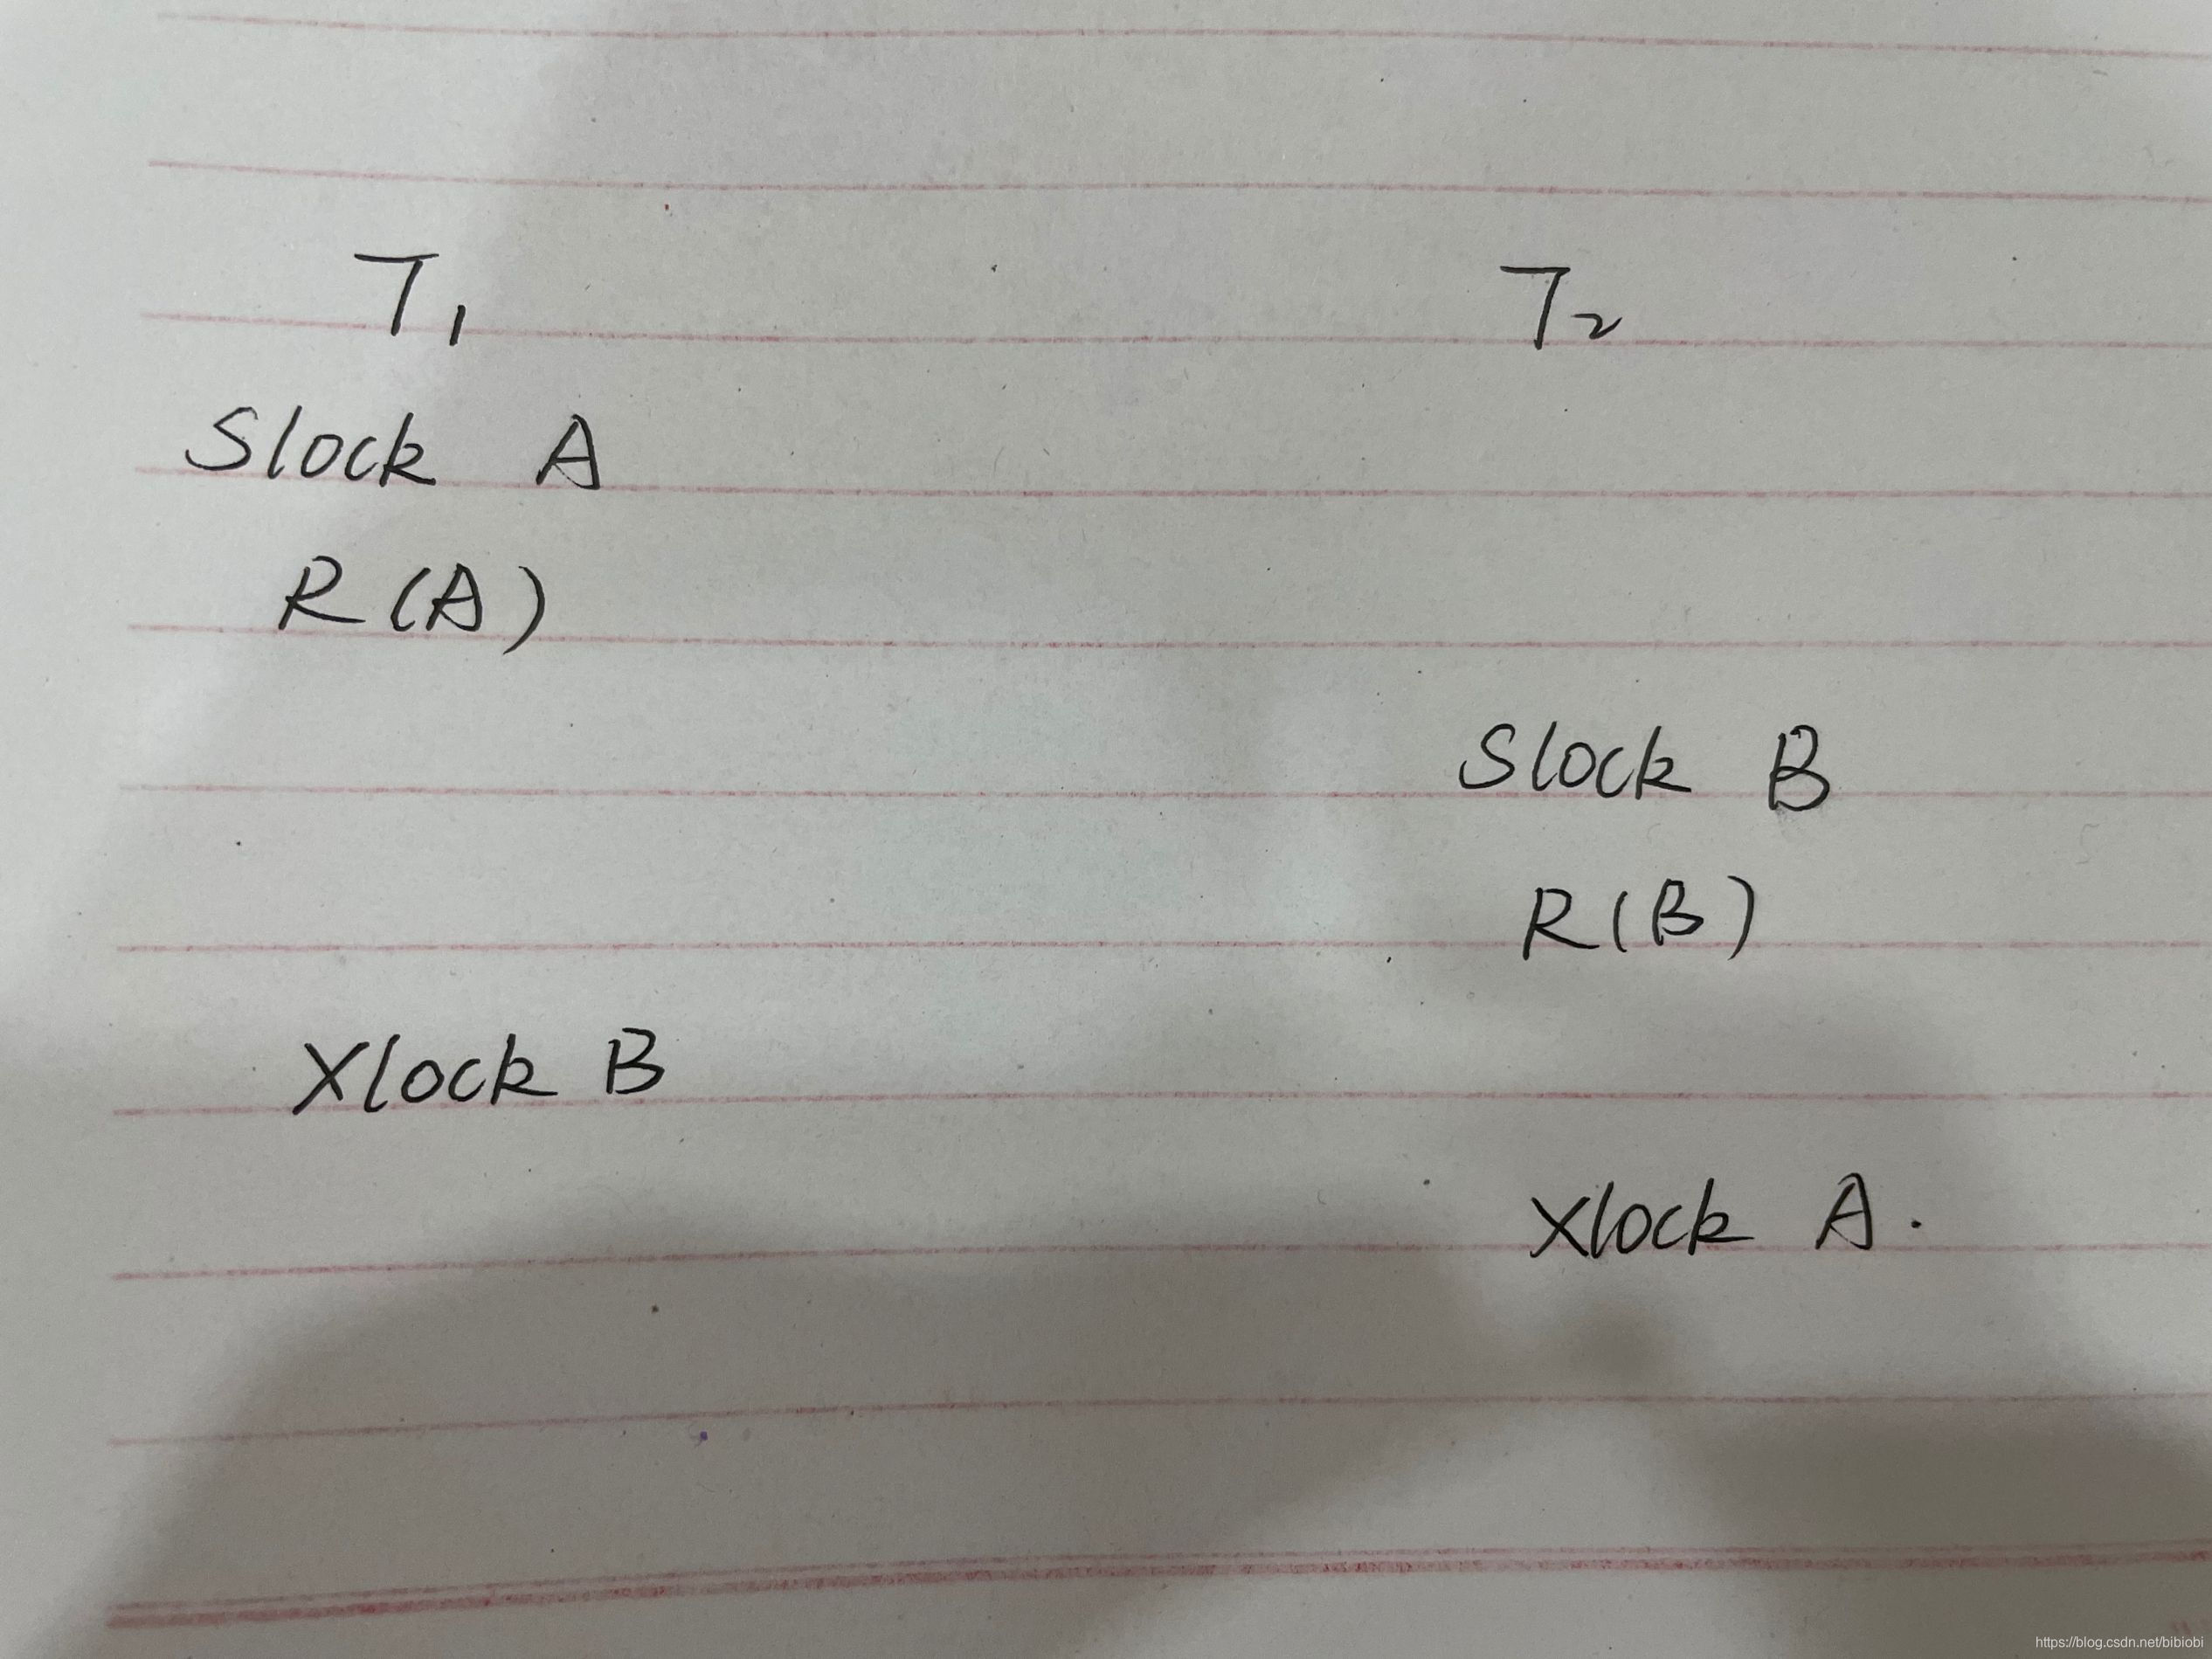 T1 T2
Slock A
R(A)
Slock B
R(B)
Xlock B
Xlock A.
https://blog.csdn.net/bibiobi